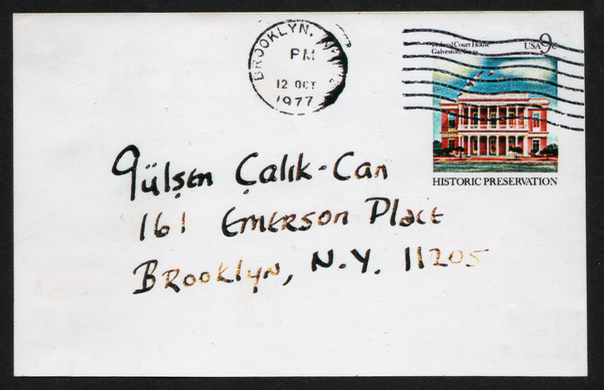 BROOKLYN, NY
PM
12 OCT
1977
Federal Court House
Galveston, Texas
USA 9c
HISTORIC PRESERVATION
Gülşen Çalık-Can
161 EMERSON PLACE
BROOKLYN, N.Y. 11205